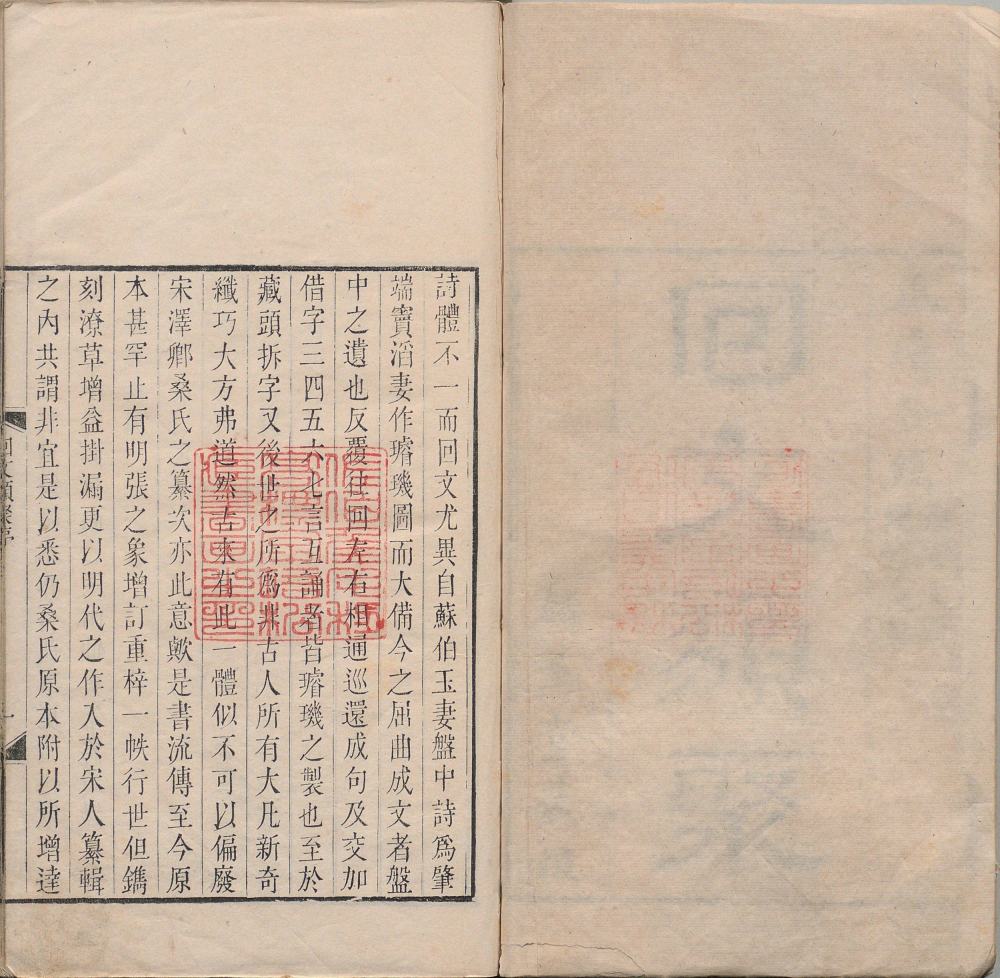 詩體不一而回文尤異自蘇伯玉妻盤中詩爲肇
端竇滔妻作璿璣圖而大備今之屈曲成文者盤
中之遺也反覆往回左右相通巡還成句及交加
借字三四五六七言互誦者皆璿璣之製也至於
藏頭拆字又後世之所爲非古人所有大凡新奇
纖巧大方弗道然古來有此一體似不可以偏廢
宋澤卿桑氏之纂次亦此意歟是書流傳至今原
本甚罕止有明張之象增訂重梓一帙行世但鐫
刻潦草增益掛漏更以明代之作入於宋人纂輯
之內共謂非宜是以悉仍桑氏原本附以所增達